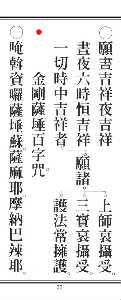 ○願晝吉祥夜吉祥
晝夜六時恒吉祥 願諸
上師哀攝受。
三寶哀攝受。
護法常擁護。
一切時中吉祥者
金剛薩埵百字咒。
○唵斡資囉薩埵蘇薩麻耶摩納巴辣耶。